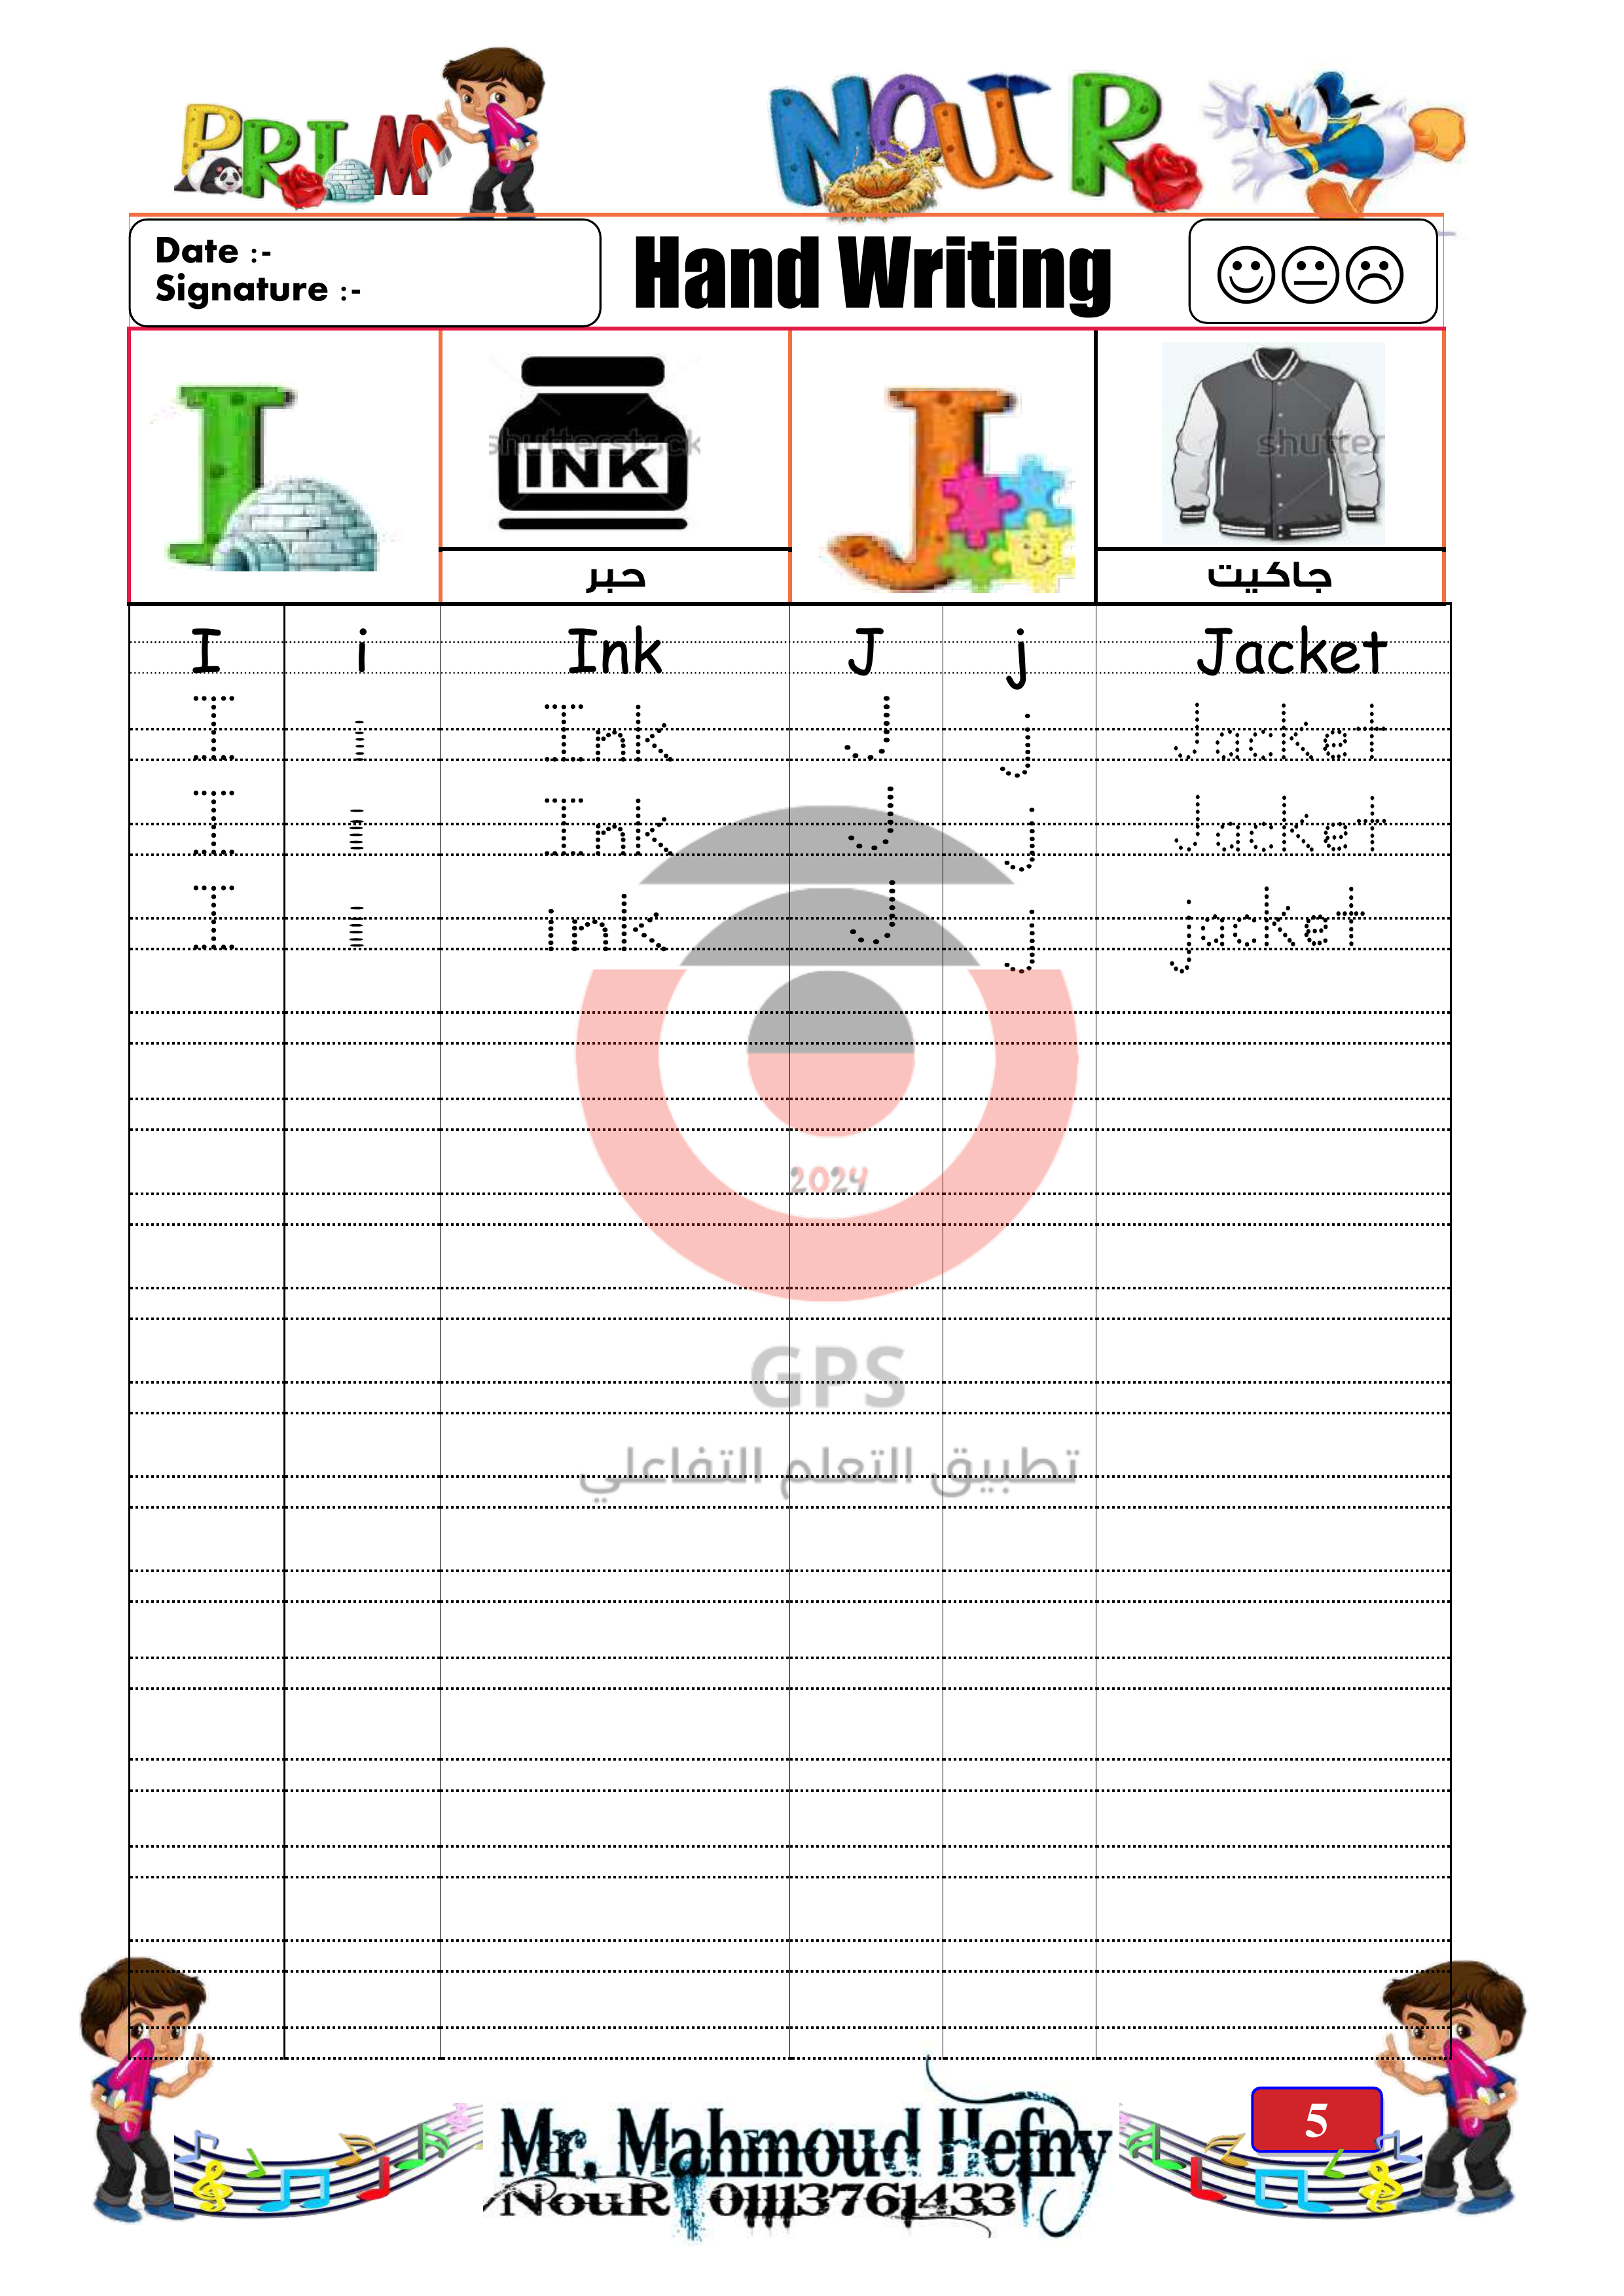 PRIM 1
NOUR
Date :-
Signature :-
Hand Writing
I
shutterstock
INK
J
shutter
حبر
جاكيت
I i Ink J j Jacket
I i Ink J j Jacket
I i Ink J j Jacket
I i ink J j jacket
2024
GPS
تطبيق التعلم التفاعلي
5
Mr. Mahmoud Hefny
NouR. 01113761433